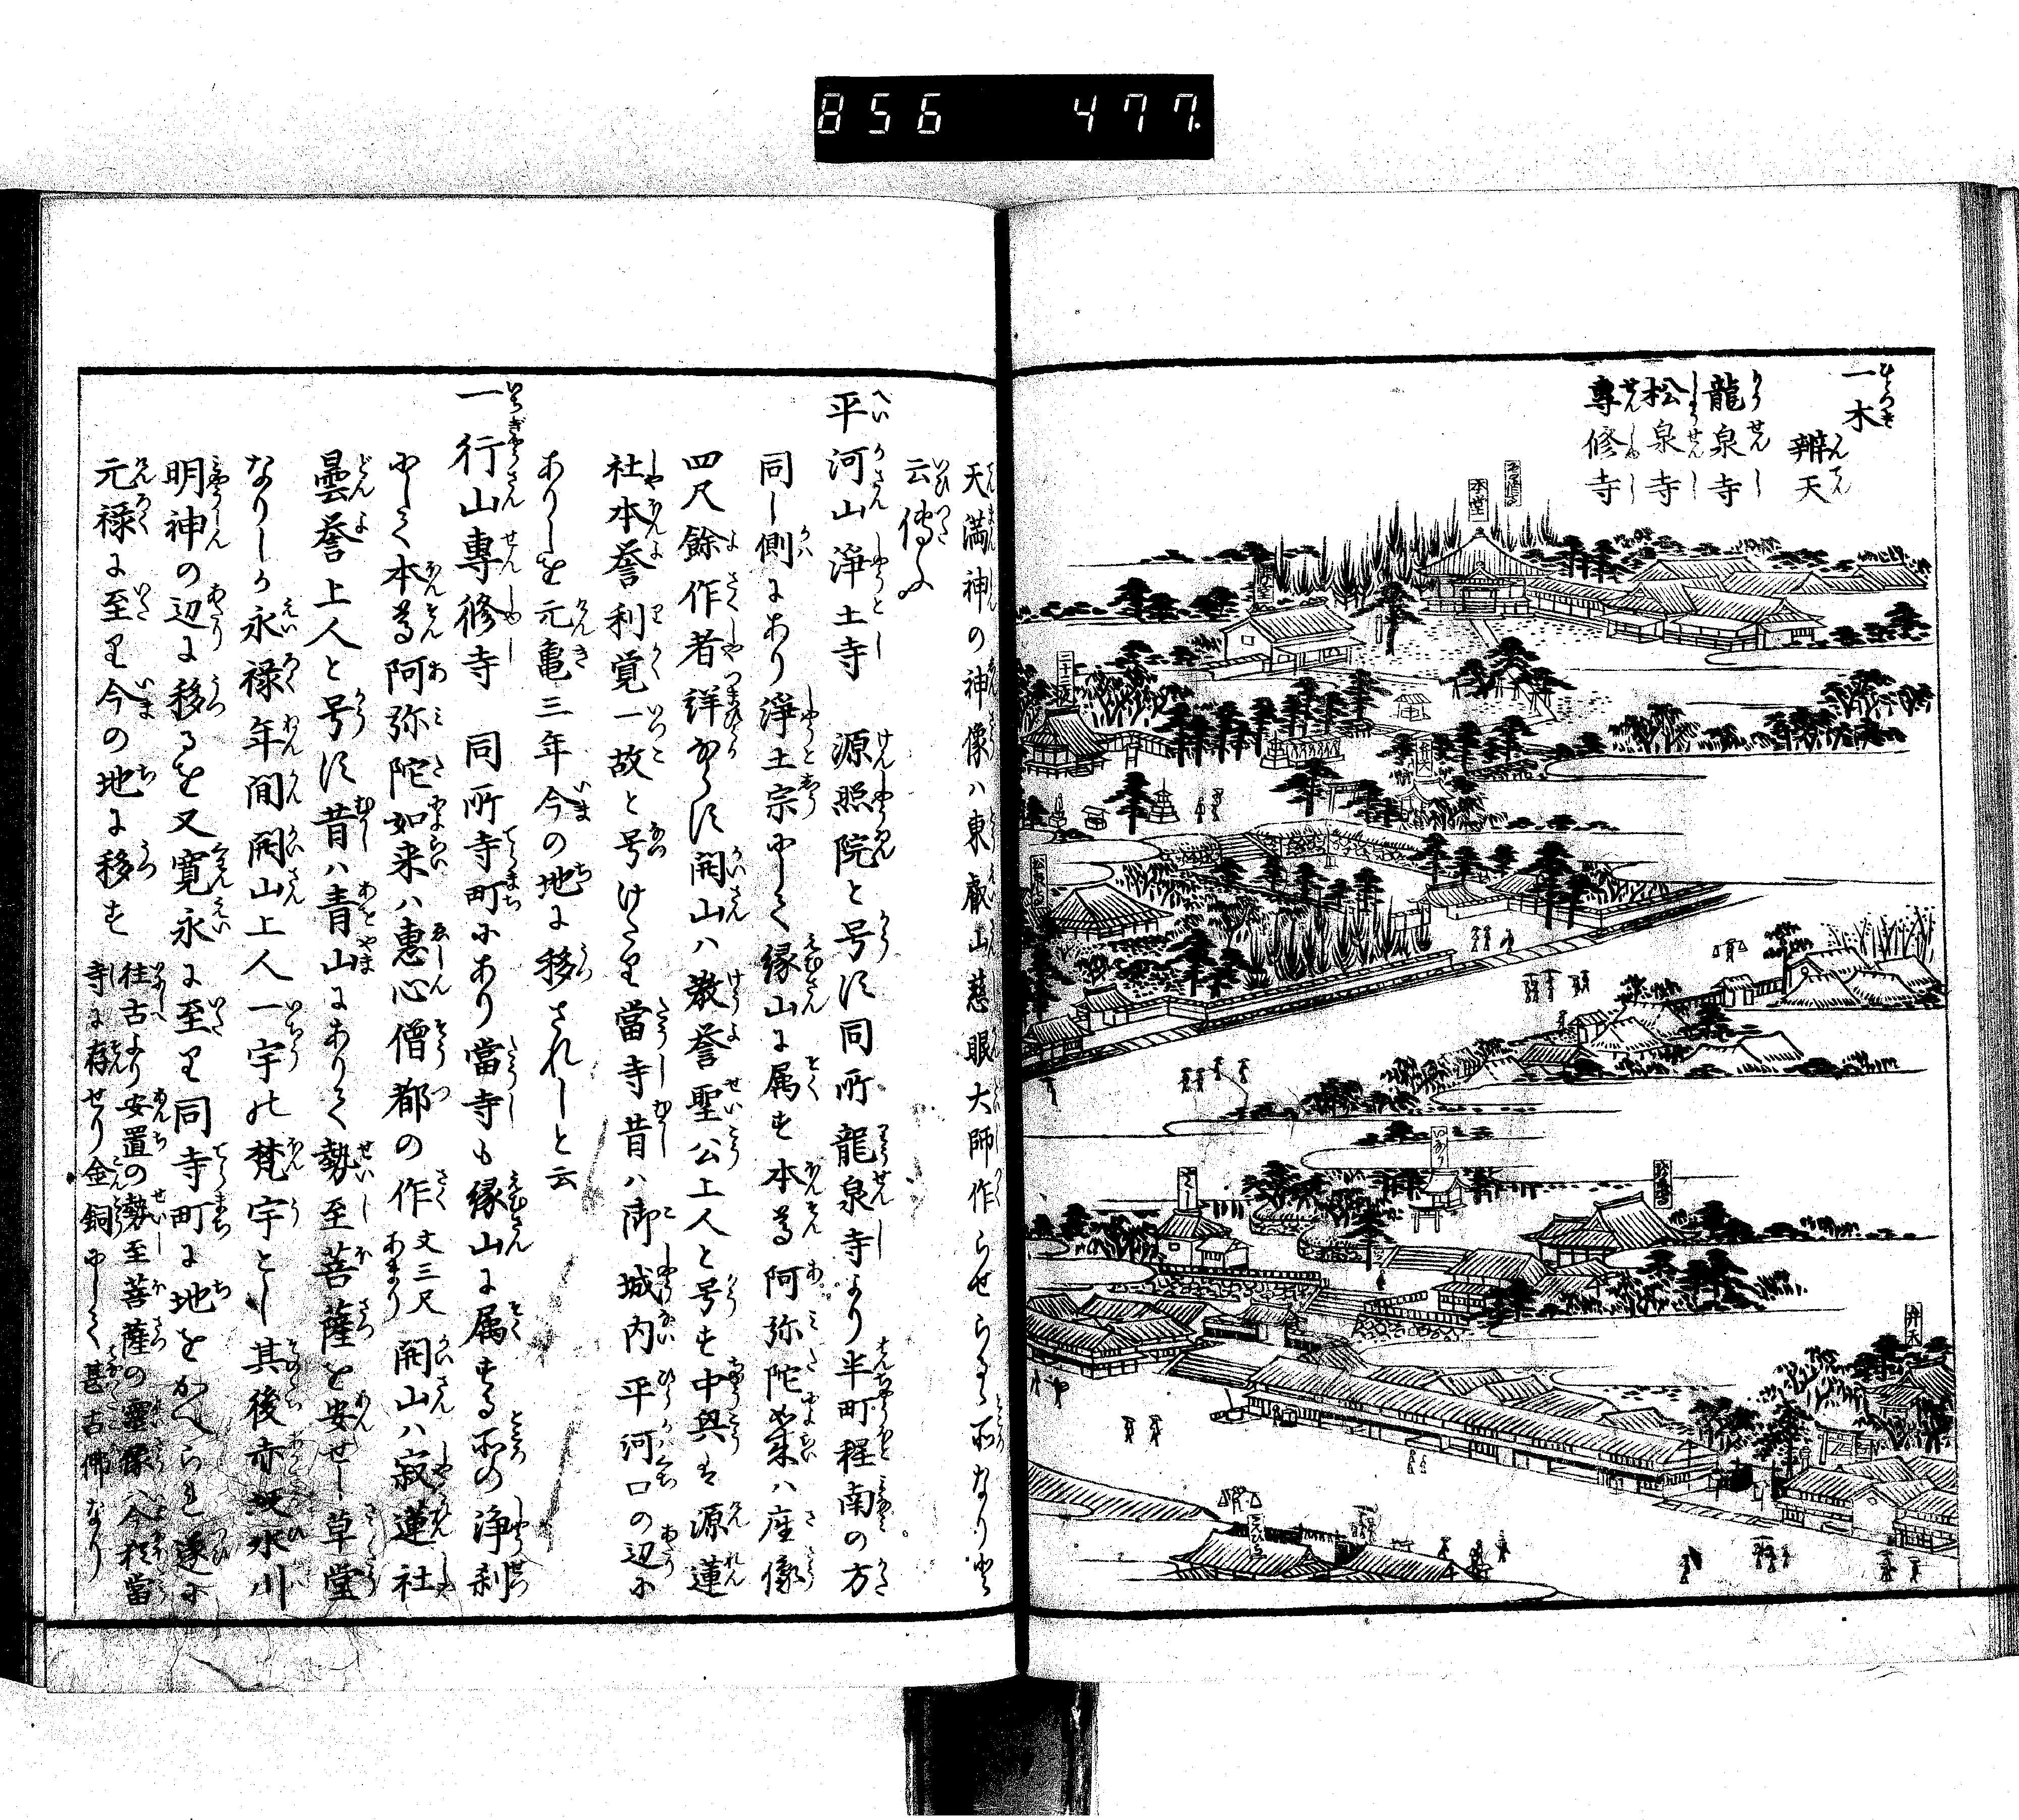 856 477
一木
辨天
龍泉寺
松泉寺
專修寺
本堂
弁天
天満神の神像ハ東叡山慈眼大師作らせらるゝ所なりと
云傳ふ
平河山淨土寺 源照院と号す同所龍泉寺より半町程南の方
同し側にあり淨土宗にして縁山に属す本尊阿弥陀如来ハ座像
四尺餘作者詳ならす開山ハ教誉聖公上人と号す中興を源蓮
社本誉利覚一故と号けたり當寺昔ハ御城内平河口の辺に
ありしを元亀三年今の地に移されしと云
一行山專修寺 同所寺町にあり當寺も縁山に属する所の淨刹
にして本尊阿弥陀如来ハ恵心僧都の作
文三尺
あまり
開山ハ寂蓮社
曇誉上人と号す昔ハ青山にありて勢至菩薩を安せし草堂
なりしか永禄年間開山上人一宇の梵宇とし其後赤坂氷川
明神の辺に移るを又寛永に至り同寺町に地をかへられ遂に
元禄に至り今の地に移す
往古より安置の勢至菩薩の霊像ハ今猶當
寺に存せり金銅にして甚古佛なり